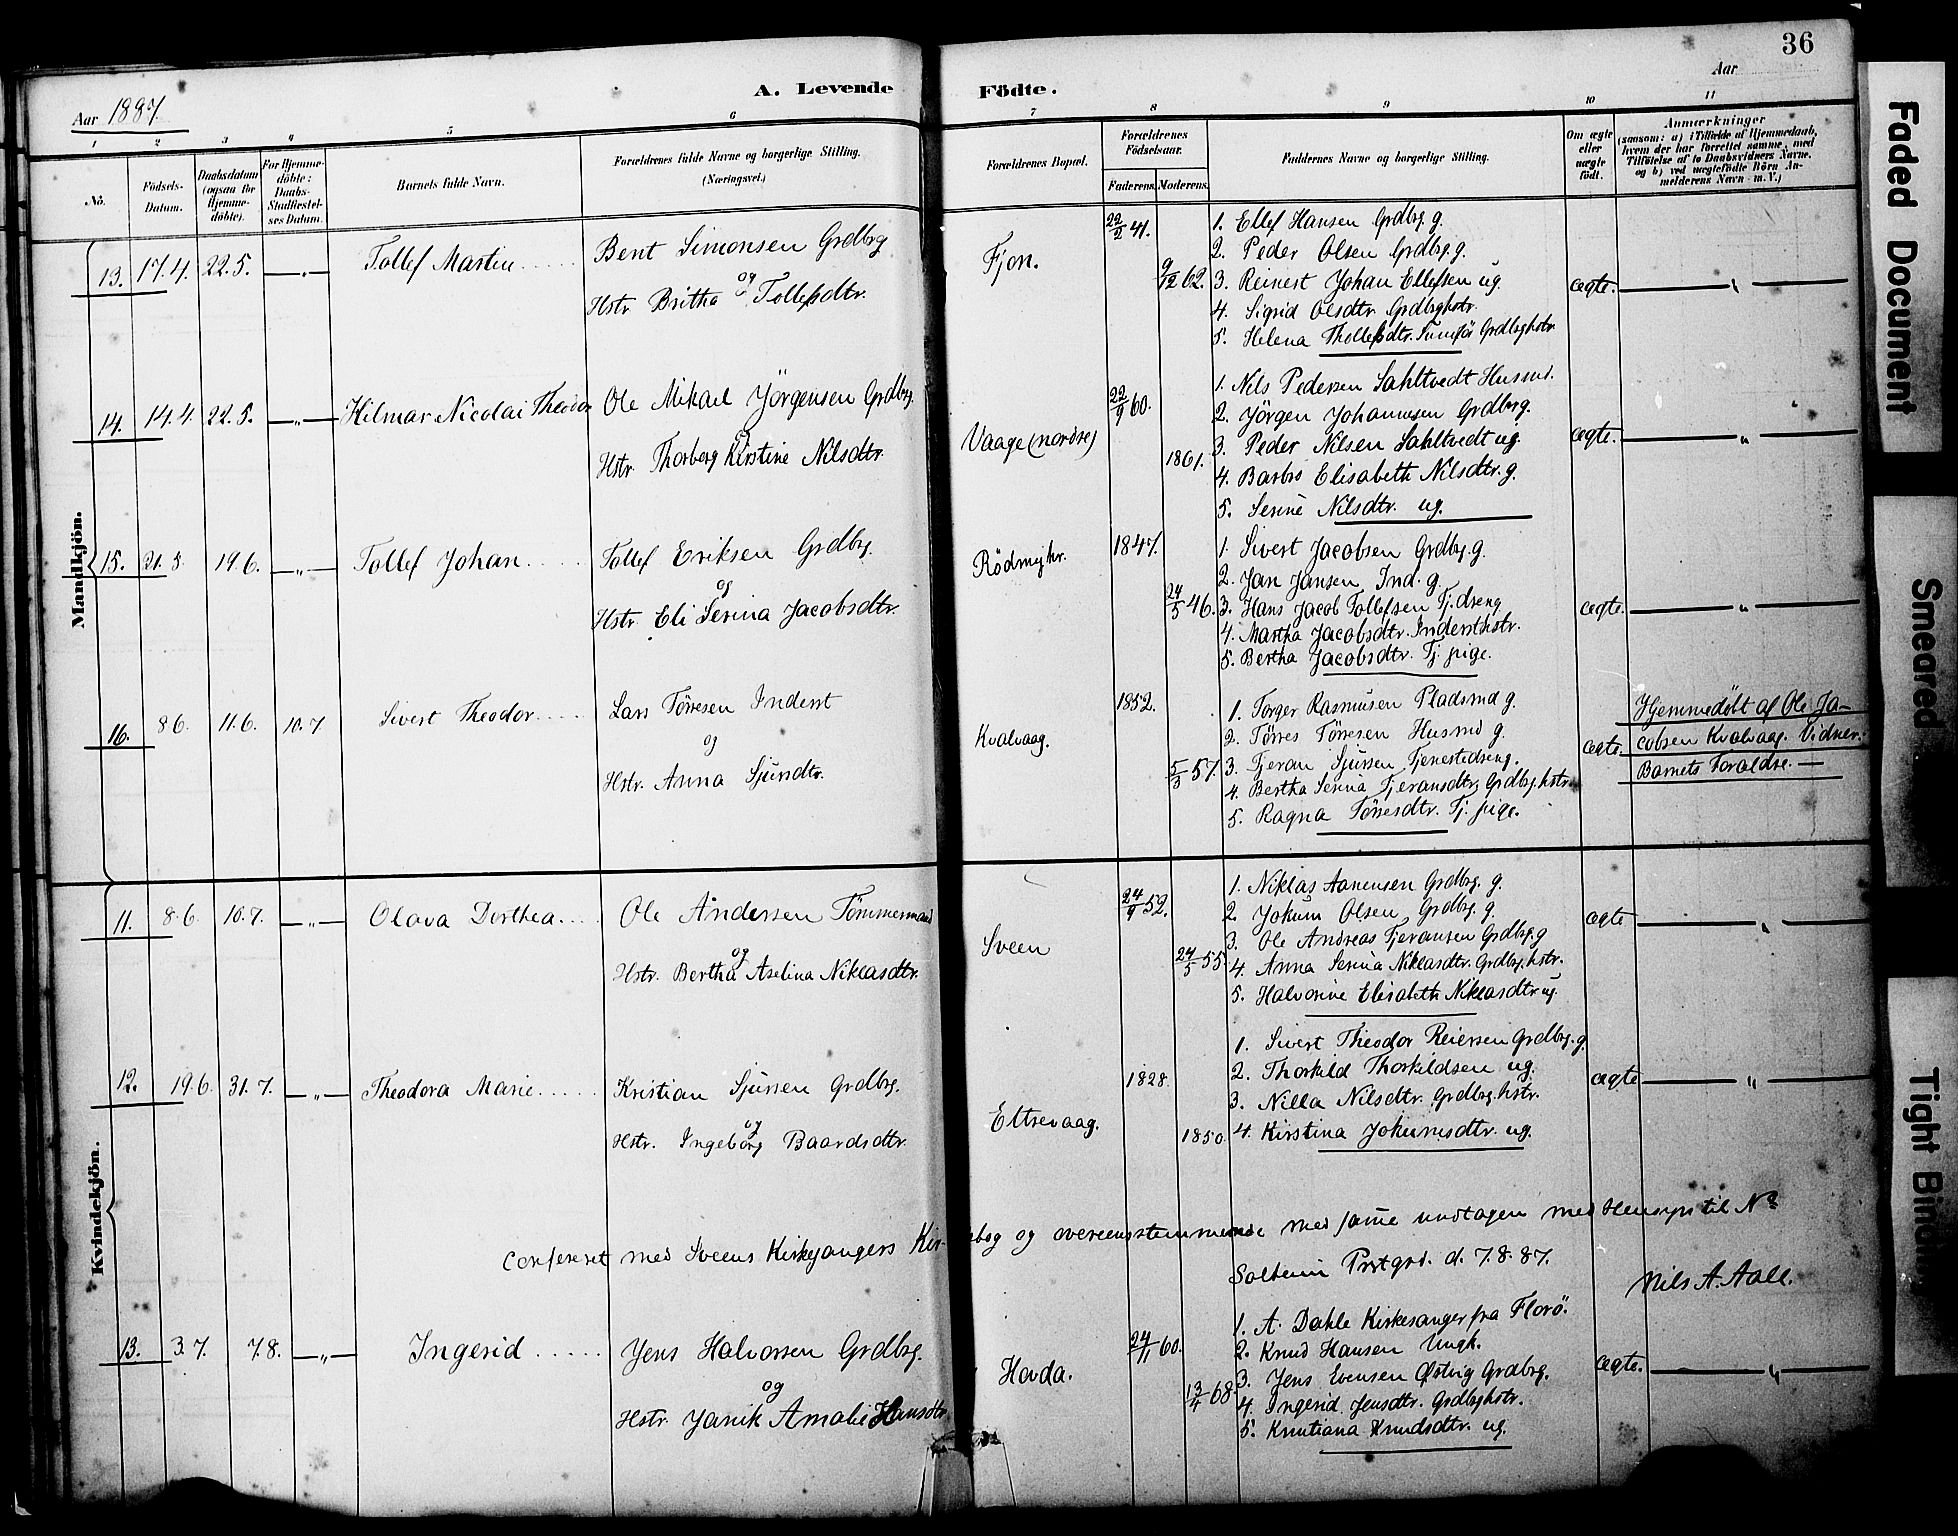 36
Aar 1887.
A. Levende Födte.
Aar
1 2 3 4 5 6 7 8 9 10 11
No.
Födsels-Datum.
Daabsdatum (ogsaa for Hjemme-döbte).
For Hjemme-döbte: Daabs-Stadfæstel-ses Datum.
Barnets fulde Navn.
Forældrenes fulde Navne og borgerlige Stilling. (Næringsvei.)
Forældrenes Bopæl.
Forældrenes Födselsaar.
Faderens. Moderens.
Faddernes Navne og borgerlige Stilling.
Om ægte eller uægte födt.
Anmærkninger
(saasom: a) i Tilfælde af Hjemmedaab,
hvem der har forrettet samme, med
Tilföielse af to Daabsvidners Navne,
og b) ved uægtefödte Börn An-
melderens Navn m. V.)
Mandkjön.
13. 17.4. 22.5. —„— Tollef Martin
Bent Simonsen Grdbrg
og
Hstr. Britha Tollefsdtr.
Fjon.
22/2 41.
9/12 62.
1. Ellef Hansen Grdbrg. g.
2. Peder Olsen Grdbrg. g.
3. Reinert Johan Ellefsen ug.
4. Sigrid Olsdtr. Grdbrghstr.
5. Helena Thollefsdtr. Grdbrghstr.
ægte. —„—
14. 14.4. 22.5. —„— Hilmar Nicolai Theodor
Ole Mikael Jörgensen Grdbrg.
og
Hstr. Thorborg Kirstine Nilsdtr.
Vaage (nordre)
22/9 60.
1861.
1. Nils Pedersen Sahltvedt Husmd.
2. Jörgen Johannesen Grdbrg.
3. Peder Nilsen Sahltvedt ug.
4. Barbro Elisabeth Nilsdtr. g.
5. Serine Nilsdtr. ug.
ægte. —„—
15. 21.5. 19.6. —„— Tollef Johan
Tollef Eriksen Grdbrg.
og
Hstr. Eli Serina Jacobsdtr.
Rödmyhr.
1847.
24/5 46.
1. Sivert Jacobsen Grdbrg. g.
2. Jan Jansen Ind. g.
3. Hans Jacob Tollefsen Tj.dreng
4. Martha Jacobsdtr. Indersthstr.
5. Bertha Jacobsdtr. Tj. pige.
ægte. —„—
16. 8.6. 11.6. 10.7 Sivert Theodor
Lars Törresen Inderst
og
Hstr. Anna Sjursdtr.
Kvalvaag.
1852.
5/3 57.
1. Torger Rasmusen Pladsmd g.
2. Törres Törresen Husmd g.
3. Tjeran Sjursen Tjenestedreng.
4. Bertha Serina Tjeransdtr. Grdbrg.hstr.
5. Ragna Törresdtr. Tj. pige.
ægte.
Hjemmedöbt af Ole Ja-
cobsen Kvalvaag. Vidner:
Barnets Foræld​re. —
Kvindekjön.
11. 8.6. 10.7. —„— Olava Dorthea
Ole Andersen Tömmermand
og
Hstr. Bertha Aselina Niklasdtr.
Sveen
24/9 52.
24/5 55.
1. Niklas Aanensen Grdbrg. g.
2. Jokum Olsen Grdbrg. g.
3. Ole Andreas Tjeransen Grdbrg. g
4. Anna Serina Niklasdtr. Grdbrg.hstr.
5. Halvorine Elisabeth Niklasdtr. ug.
ægte —„—
12. 19.6. 31.7. —„— Theodora Marie
Kristian Sjursen Grdbrg.
og
Hstr. Ingeborg Baardsdtr.
Eltrevaag.
1828.
1850.
1. Sivert Theodor Reiersen Grdbrg. g.
2. Thorkild Thorkildsen ug.
3. Nilla Nilsdtr. Grdbrg.hstr.
4. Kirstina Jokumsdtr. ug.
ægte —„—
Confereret med Sveens Kirkesangers Kirkebog og overeensstemmende med samme undtagen med Hensyn til No
Prstgrd. d. 7.8.87.
Nils A. Aall.
13. 3.7. 7.8. —„— Ingerid
Jens Halvorsen Grdbrg.
og
Hstr. Janik Amalie Hansdtr
Hovda.
24/11 60.
13/4 68.
1. A. Dahle Kirkesanger fra Florö.
2. Knud Hansen Ungk.
3. Jens Evensen Østvig Grdbrg.
4. Ingerid Jensdtr. Grdbrghstr.
5. Knutiana Knudsdtr. ug.
ægte. —„—
Faded Document
Smeared
Tight Binding